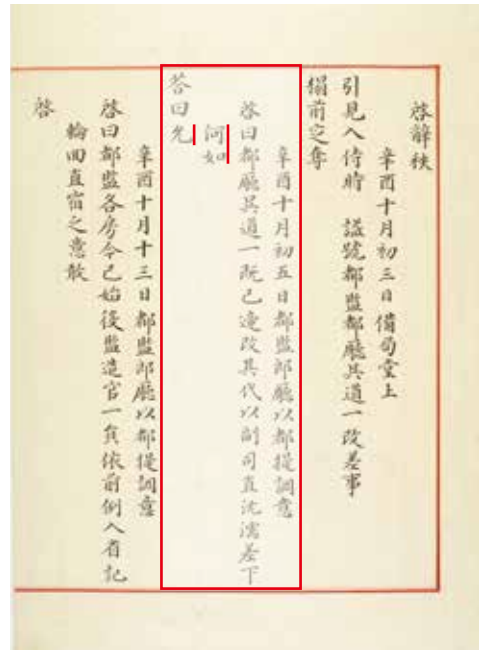 啓辭秩
辛酉十月初三日備局堂上
引見入侍時 謚號都監都廳具道一改差事
榻前定奪
辛酉十月初五日都監郎廳以都提調意
啓曰都廳具道一旣已遞改其代以副司直沈濡差下
何如
答曰允
辛酉十月十三日都監郎廳以都提調意
啓曰都監各房今已始役監造官一員依前例入省記
輪回直宿之意敢
啓